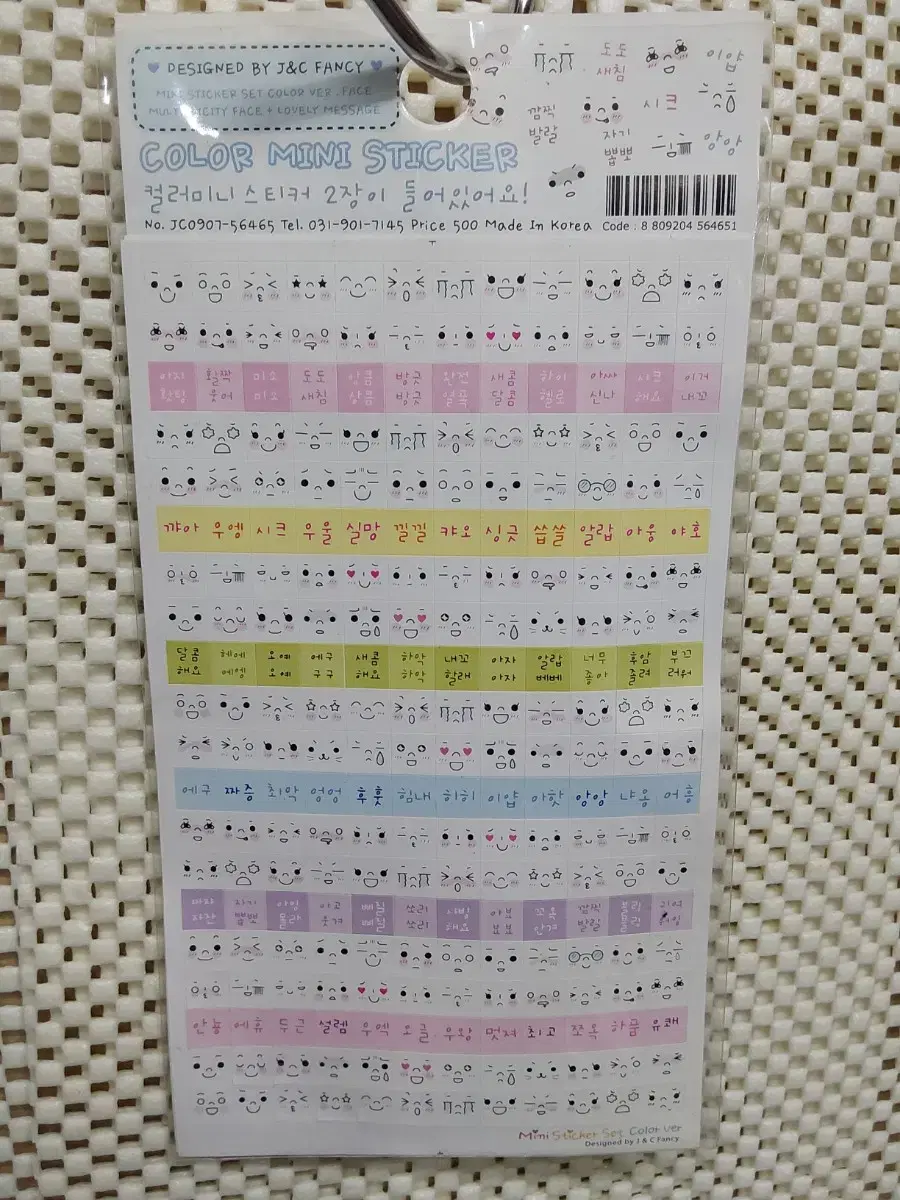 DESIGNED BY J&C FANCY
MINI STICKER SET COLOR VER. FACE
MULTIPLICITY FACE + LOVELY MESSAGE
도도 이얍
새침
깜찍 시크
발랄 자기 앙앙
뽑뽀
COLOR MINI STICKER
컬러미니스티커 2장이 들어있어요!
No. JC0907-56465 Tel. 031-901-7145 Price 500 Made In Korea Code : 8 809204 564651
아자 활짝 미소 도도 앙큼 방긋 완전 새콤 하이 아싸 시크 이거
홧팅 웃어 미소 새침 상큼 방긋 얼꽉 달콤 헬로 신나 해요 내꼬
꺄아 우엥 시크 우울 실망 낄낄 캬오 싱긋 씁쓸 알랍 아웅 야호
달콤 헤헤 오예 에구 새콤 하악 내꼬 아자 알랍 너무 후암 부끄
해요 에엥 오예 구구 해요 하악 할래 아자 베베 좋아 졸려 러워
에구 짜증 최악 엉엉 후훗 힘내 히히 이얍 아핫 앙앙 냐옹 어흥
자기 이고 쏘리 사랑 깜찍
뽑뽀 몰라 웃겨 삐질 쏘리 해요 보보 발랄
안뇽 에휴 두근 설렘 우엑 오글 우왕 멋져 최고 쪼옥 하품 유쾌
Mini Sticker Set Color Ver
Designed by J & C Fancy